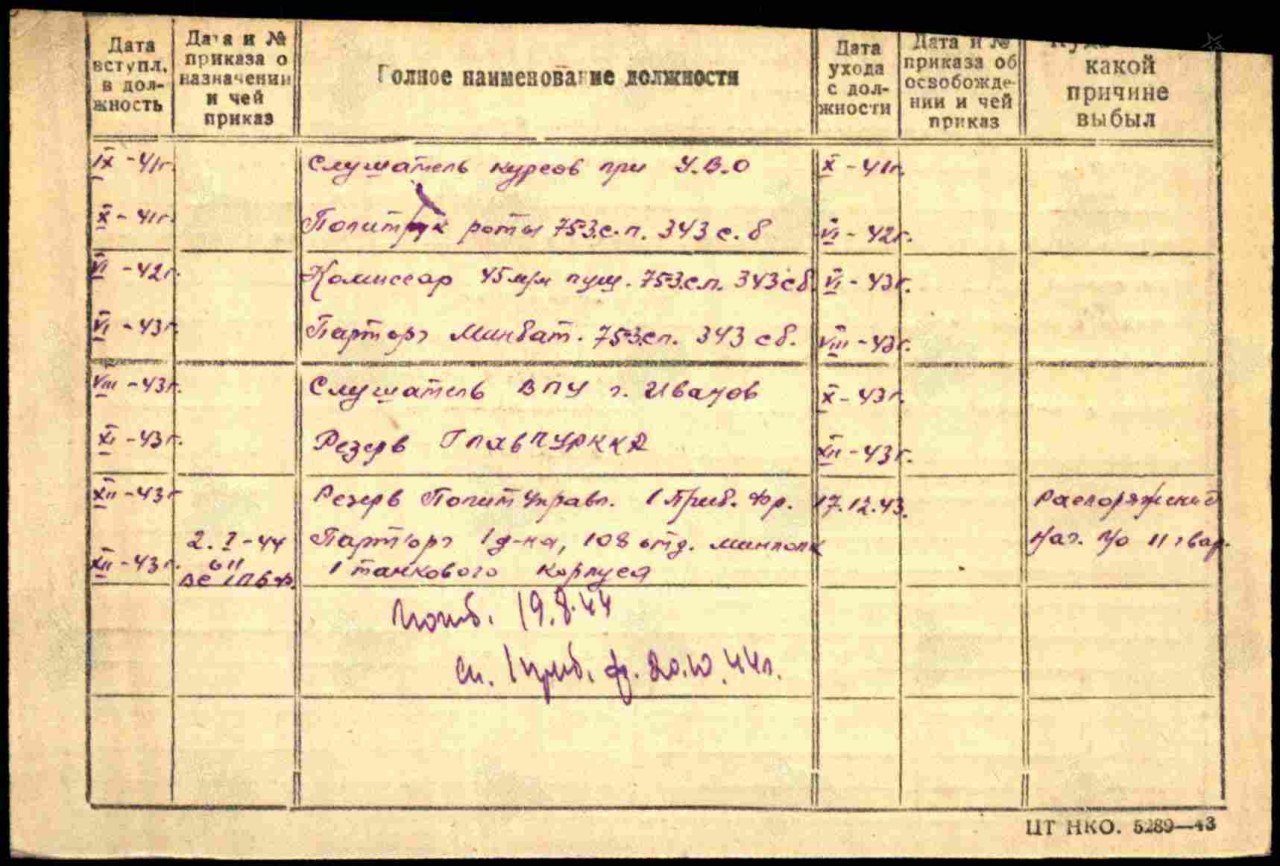 Дата вступл. в дол-жность
Дата и № приказа о назначении и чей приказ
Полное наименование должности
Дата ухода с дол-жности
Дата и № приказа об освобожде-нии и чей приказ
какой причине выбыл
IX - 41г. Слушатель курсов при У.В.О X - 41г.
X - 41г. Политрук роты 753 с.п. 343 с.д VI - 42г.
VI - 42г. Комиссар 45 м/м пуш. 753 с.п. 343 сд. VI - 43г.
VI - 43г. Парторг Минбат. 753 сп. 343 сд. VIII - 43г.
VIII - 43г. Слушатель ВПУ г. Иваново X - 43г.
XI - 43г. Резерв ГлавПУРККА XII - 43г.
XII - 43г Резерв ПолитУправл. 1 Приб. Фр. 17.12.43. Распоряжений
XII - 43г. 2.I-44 011 ВС 1ПБФ Парторг 1 д-на, 108 отд. минполк Нач. п/о 11 гвар.
1 танкового корпуса
Погиб. 19.8.44
сп. 1 приб. фр. 20.10.44г.
ЦТ НКО. 5289—43